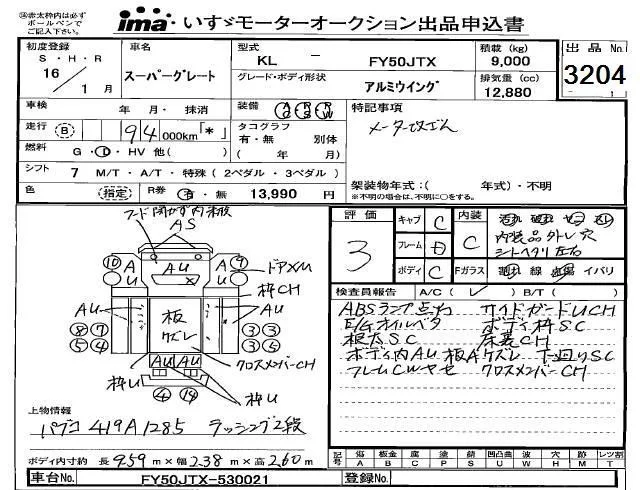 ※赤太枠内は必ず
ボールペンで
ご記入下さい。
ima いすゞモーターオークション出品申込書
初度登録 車名 型式 積載 (kg) 出品No
S・H・R KL － FY50JTX 9,000 3204
16 / 1月 スーパーグレート グレード・ボディ形状 アルミウイング 排気量 (cc) 12,880
車検 年 月・抹消 装備 AC PS PW 特記事項
走行 B 94 000km「*」 タコグラフ メーター改ざん
有・無 別体
燃料 G・D・HV 他( ) ( 年 月)
シフト 7 M/T・A/T・特殊(2ペダル・3ペダル) 架装物年式:( 年式)・不明
※不明の場合は、不明に○をする。
色 (指定) R券 有・無 13,990 円
評価 3
キャブ C 内装 C
フレーム D
ボディ C Fガラス 線 イバリ
内装品外トレ穴
シートヘタリ左右
検査員報告 A/C( ✓ )・B/T( )
ABSランプ点灯 サイドガードUCH
E/Gオイルベタ ボディ枠SC
根太SC 床裏CH
ボディ内AU 板Aケズレ 下廻りSC
フレームCWヤセ クロスメンバーCH
AS
⑩ A U AU A U ④ ドアメM
枠CH
AU 板ケズレ AU
⑧ ⑦ ③ ③
⑤ ④ ③ ⑤
AU AU クロスメンバーCH
枠U ④ ⑭ 枠U
上物情報
パブコ 419A1285 ラッシング2段
ボディ内寸約 長 9.59 m×幅 2.38 m×高 2.60 m
記号 傷 A 板金 B 腐 C 塗 P 錆 S 凹凸曲 U 波 W 穴 H 外 M レツ割 T
車台No. FY50JTX-530021 登録No.